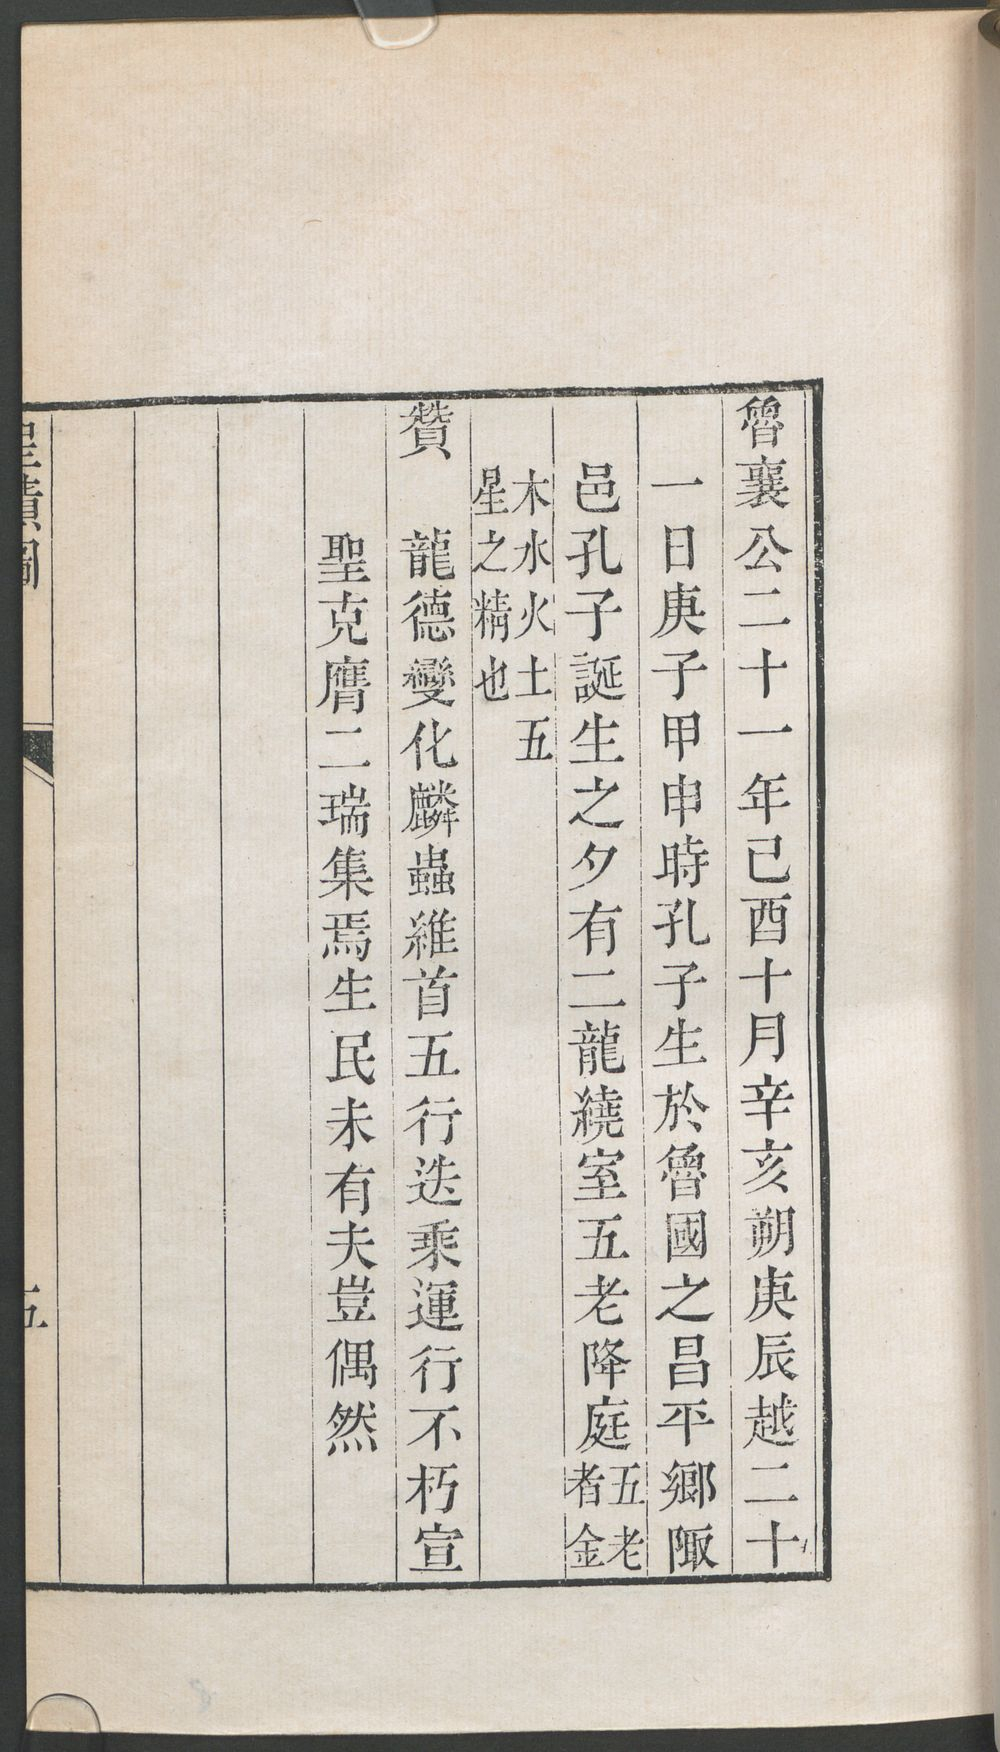 魯襄公二十一年己酉十月辛亥朔庚辰越二十
一日庚子甲申時孔子生於魯國之昌平鄉陬
邑孔子誕生之夕有二龍繞室五老降庭五老者金
木水火土五星之精也
贊 龍德變化麟蟲維首五行迭乘運行不朽宣
聖克膺二瑞集焉生民未有夫豈偶然
聖蹟圖
五